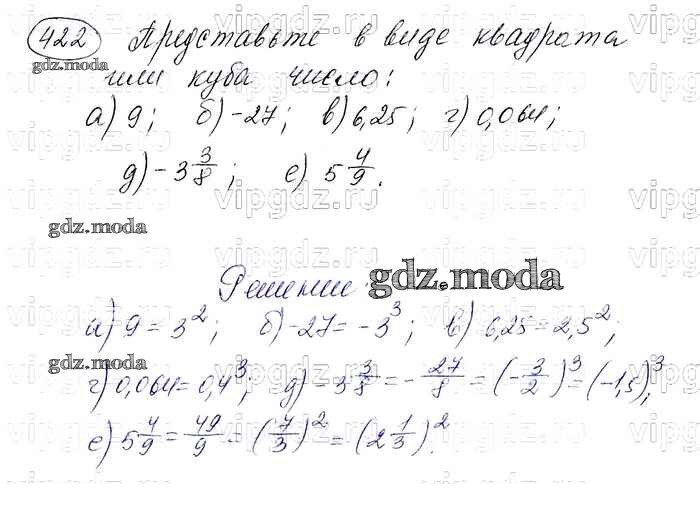 422 Представьте в виде квадрата
gdz.moda
или куба число:
а) 9; б) -27; в) 6,25; г) 0,064;
д) -3 3/8; е) 5 4/9.
gdz.moda
Решение: gdz.moda
а) 9 = 3²; б) -27 = -3³; в) 6,25 = 2,5²;
gdz.moda
г) 0,064 = 0,4³; д) -3 3/8 = -27/8 = (-3/2)³ = (-1,5)³;
е) 5 4/9 = 49/9 = (7/3)² = (2 1/3)².
vipgdz.ru